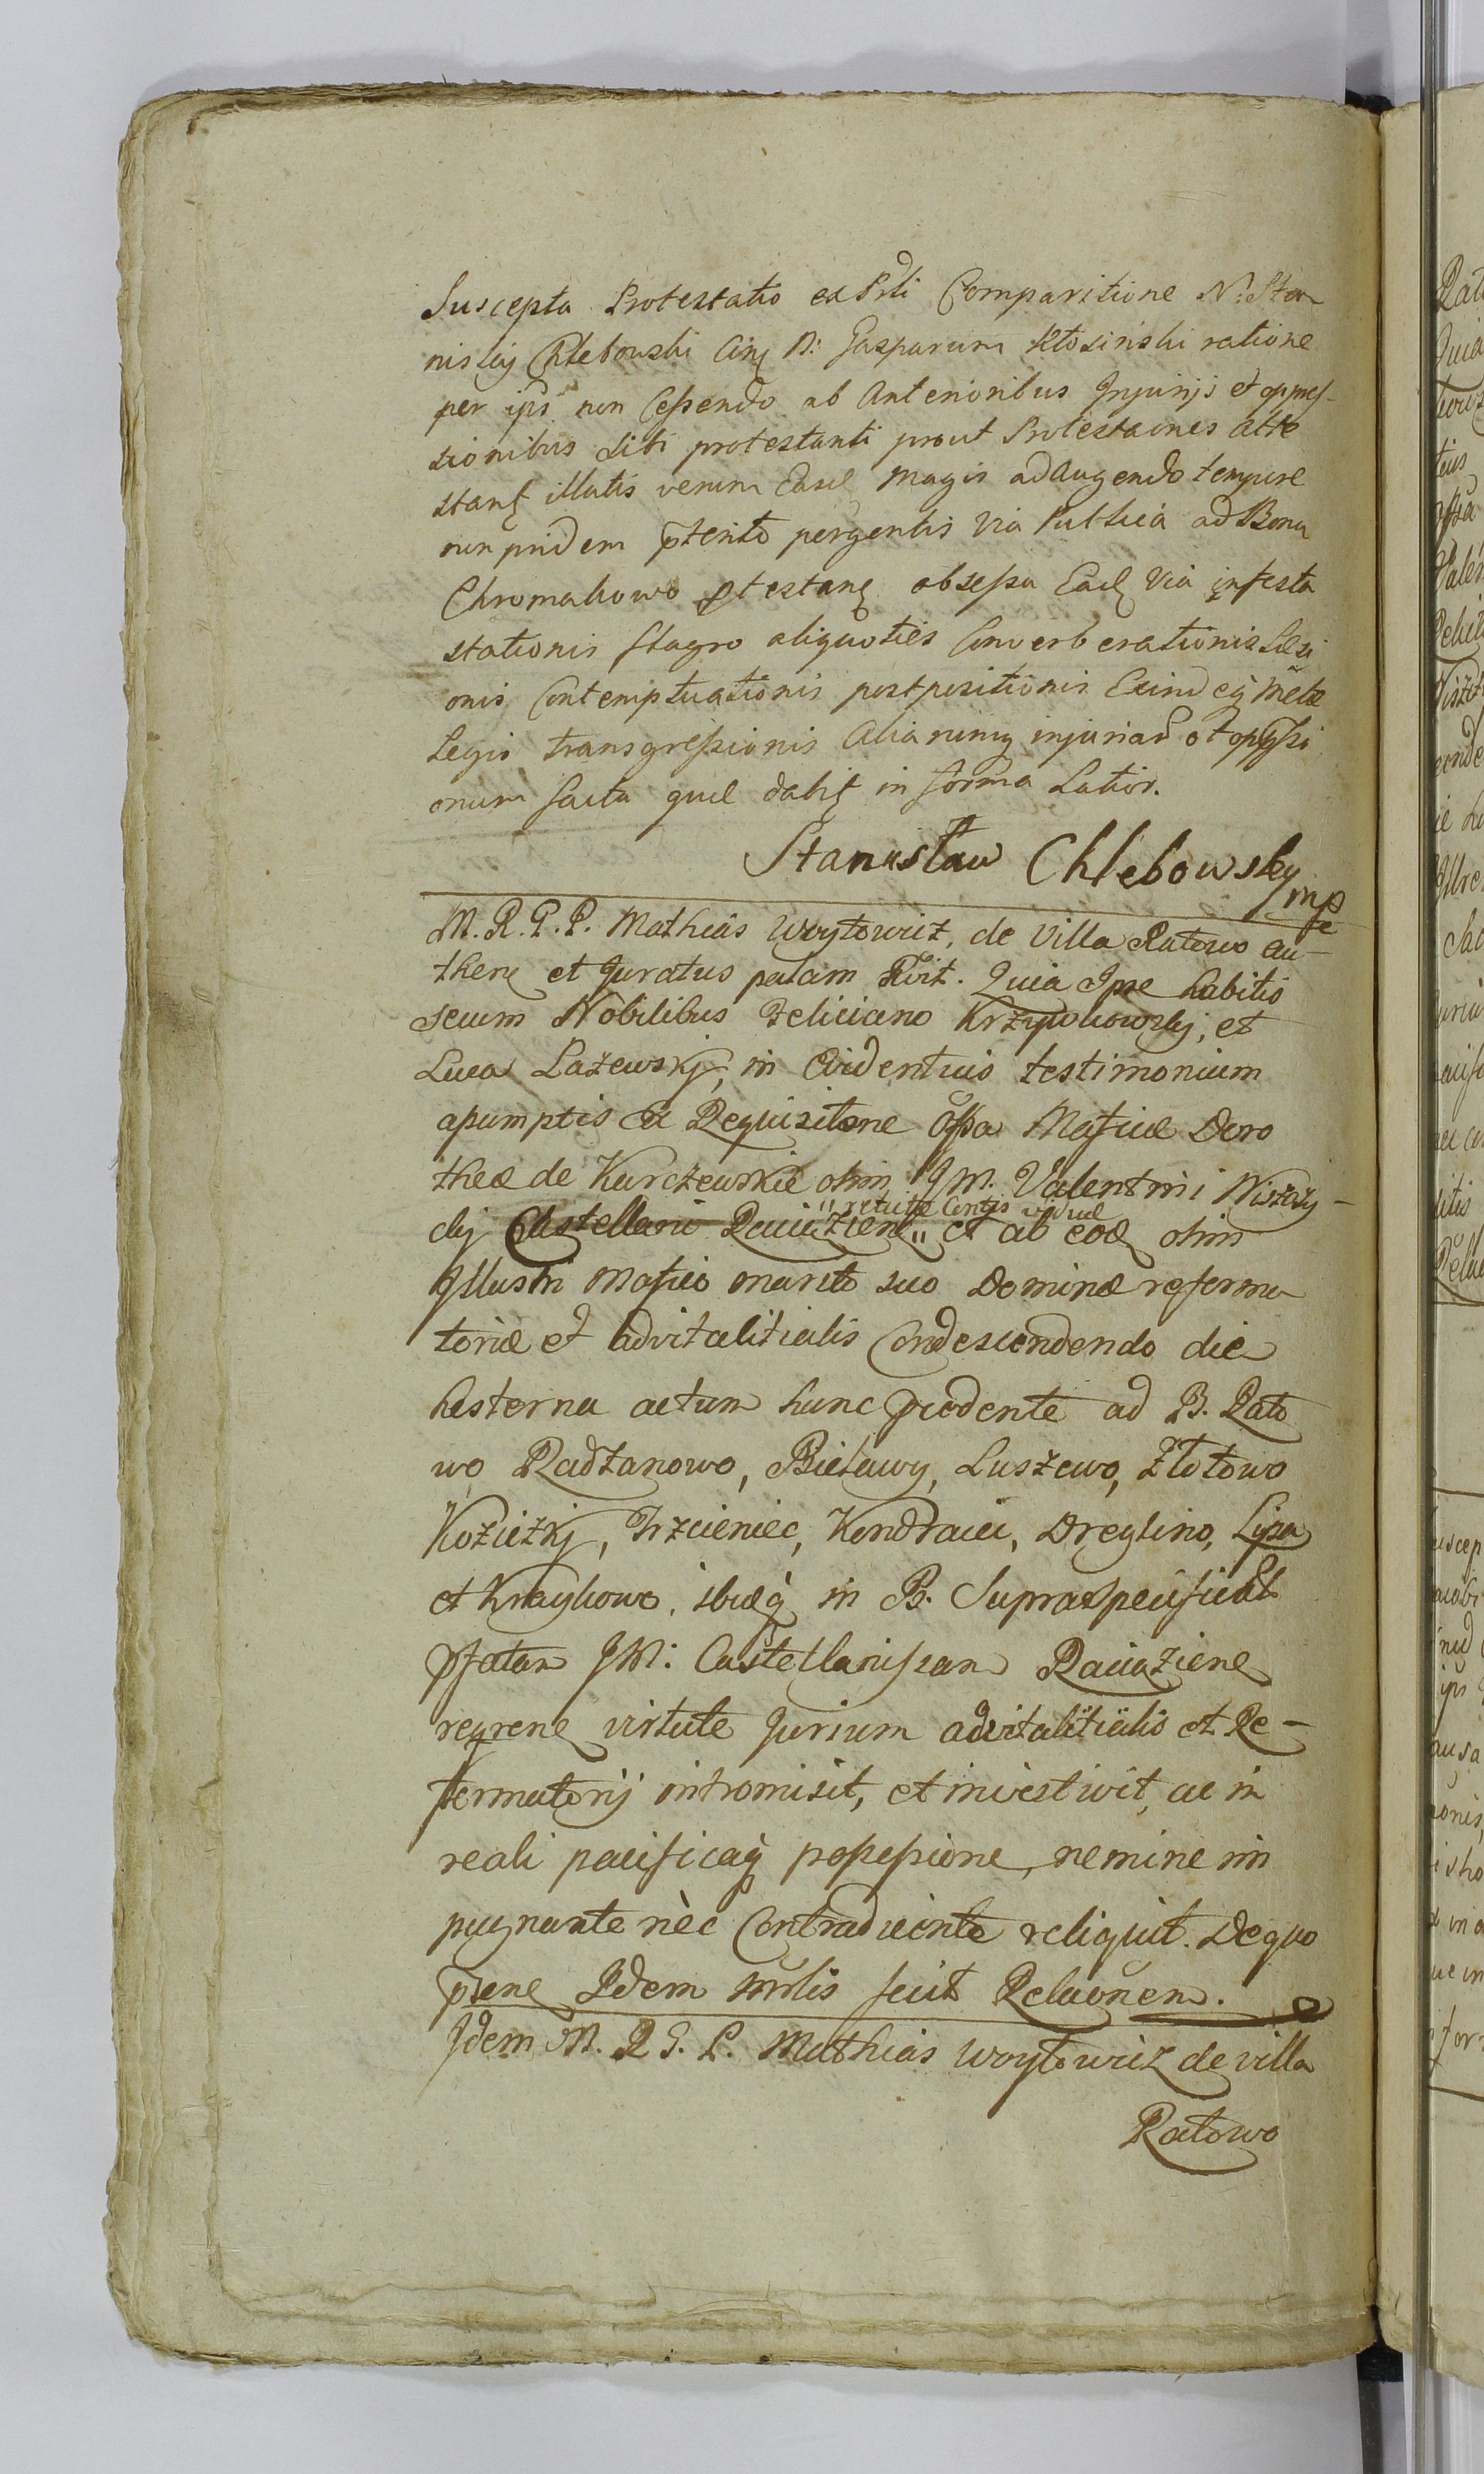 Suscepta Protestatio ex Psti Comparitione N: Sta
nislaj Chlebowski Cinq N: Gasparum Kłosinski ratione
per ips non Cessendo ab Anterioribus Injurijs et oppres-
sionibus sibi protestanti prout Protestaones atte
stant illatis verum Easd magis adaugendo tempore
non pridem pterito pergentis Via Publica ad Bona
Chromakowo ptestanq obsessa Ead Via infesta
stationis flagro aliquoties Converberationis Læsi
onis Contemptuationis postpositionis Exindeq Metæ
Legis transgressionis Aliarumq injuriar et oppssi
onum facta quæ dabit in forma Latior.
Stanisław Chlebowsky
mp
M. R. G. P. Mathias Woytowicz, de Villa Ratowo au-
then et Juratus palam Rvit. Quia Ipse habitis
secum Nobilibus Feliciano Krzypkowskj, et
Luca Lazewskj, in Evidentius testimonium
assumptis Ex Requisitone Mafcæ Doro
theæ de Kurczewskie olim IM. Valentini Niszczy-
" retente Contis viduæ
ckj Castellani Raciązienſ " et ab eod olim
Illustri Mafico marito suo Dominæ reforma
toriæ et advitalitialis Condescendendo die
hesterna actum hunc præcedente ad B. Rato
wo Radzanowo, Bielawy, Luszewo, Złotowo
Koziczkj, Trzcieniec, Kondraiec, Dreglino, Lipa
et Kraykowo, ibidq in B. Supraspecificat
pfatam IM: Castellanissam Raciąziene
reqrene virtute Jurium advitalitialis et Re-
formatorij intromisit, et investivit, ac in
reali pacificaq possessione, nemine im
pugnante nèc Contradicente reliquit. De quo
psene Idem mnlis fecit Relaonem.
Idem M. R G. P. Mathias Woytowicz de villa
Ratowo